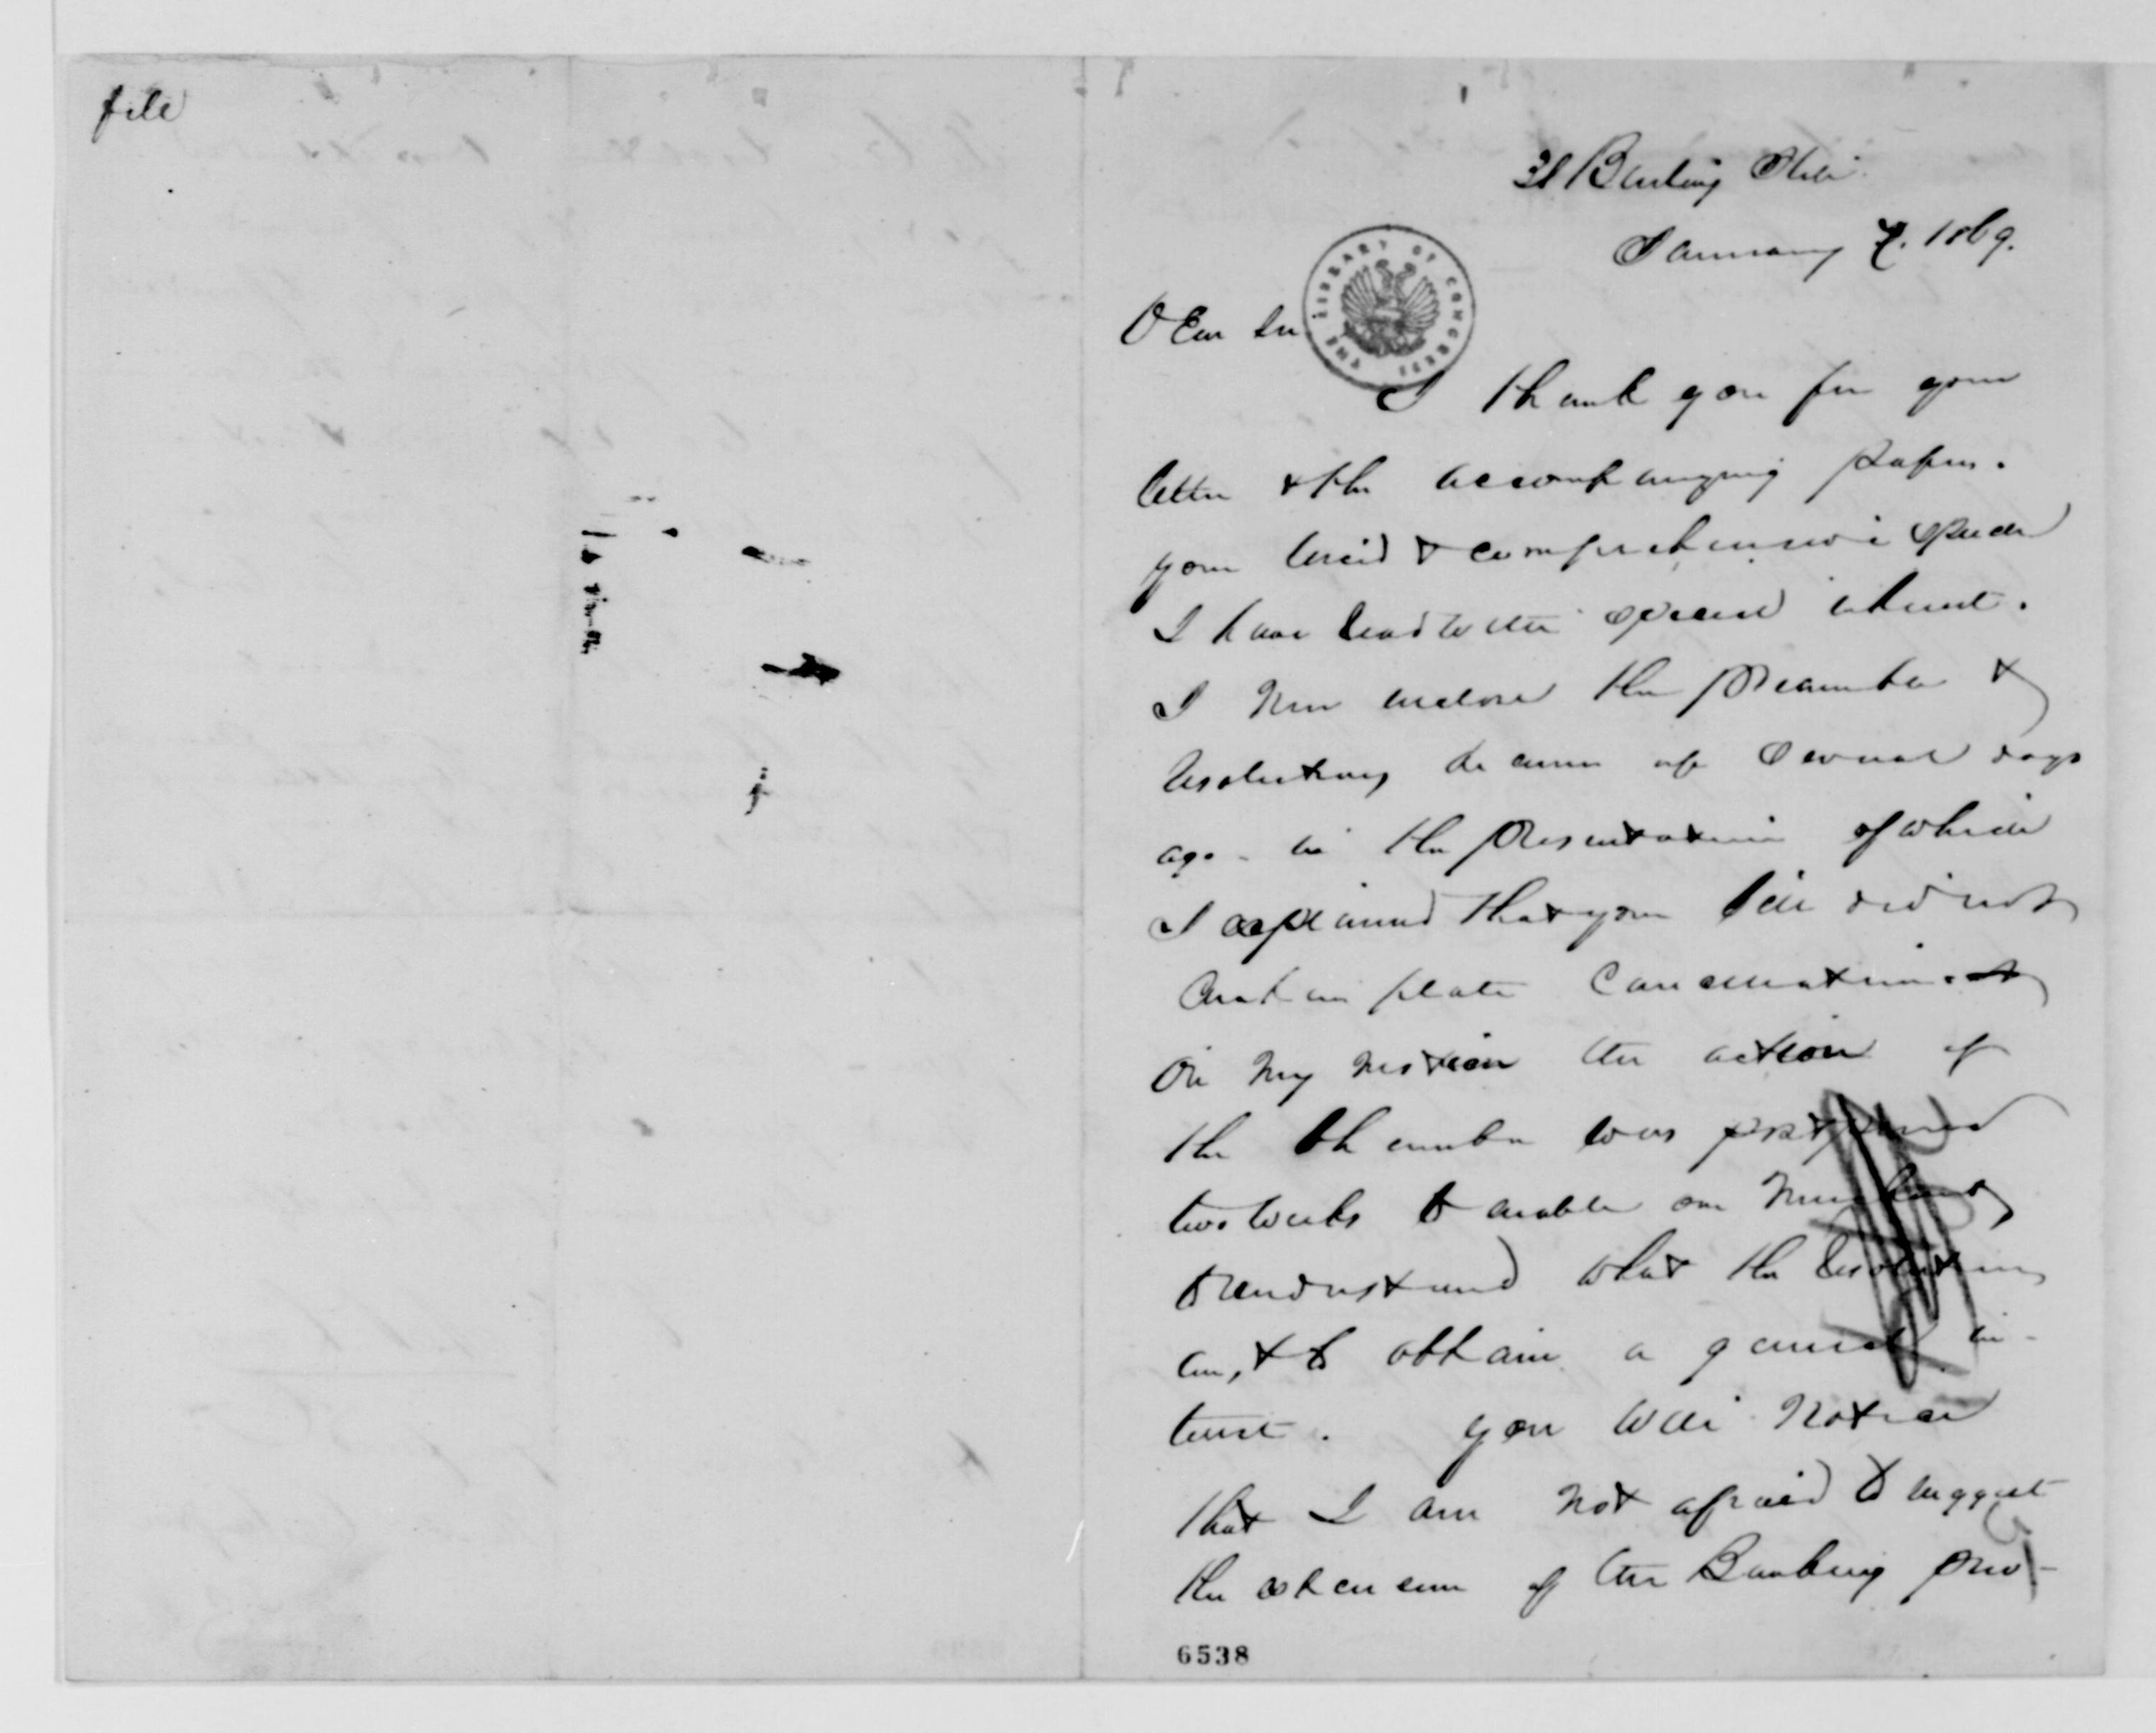 file
31 Burling Slip
January 7. 1869.
Dear Sir
THE LIBRARY OF CONGRESS
I thank you for your
letter & the accompanying papers.
your lucid & comprehensive speech
I have read with special interest.
I now enclose the preamble &
resolutions drawn up several days
ago. in the presentation of which
I explained that your bill did not
contemplate cancellation.
On my motion the action of
the Chamber was postponed
two weeks to enable our
to understand what the resolutions
are, & to obtain a general in-
terest. you will notice
that I am not afraid to suggest
the extension of the Banking priv-
6538